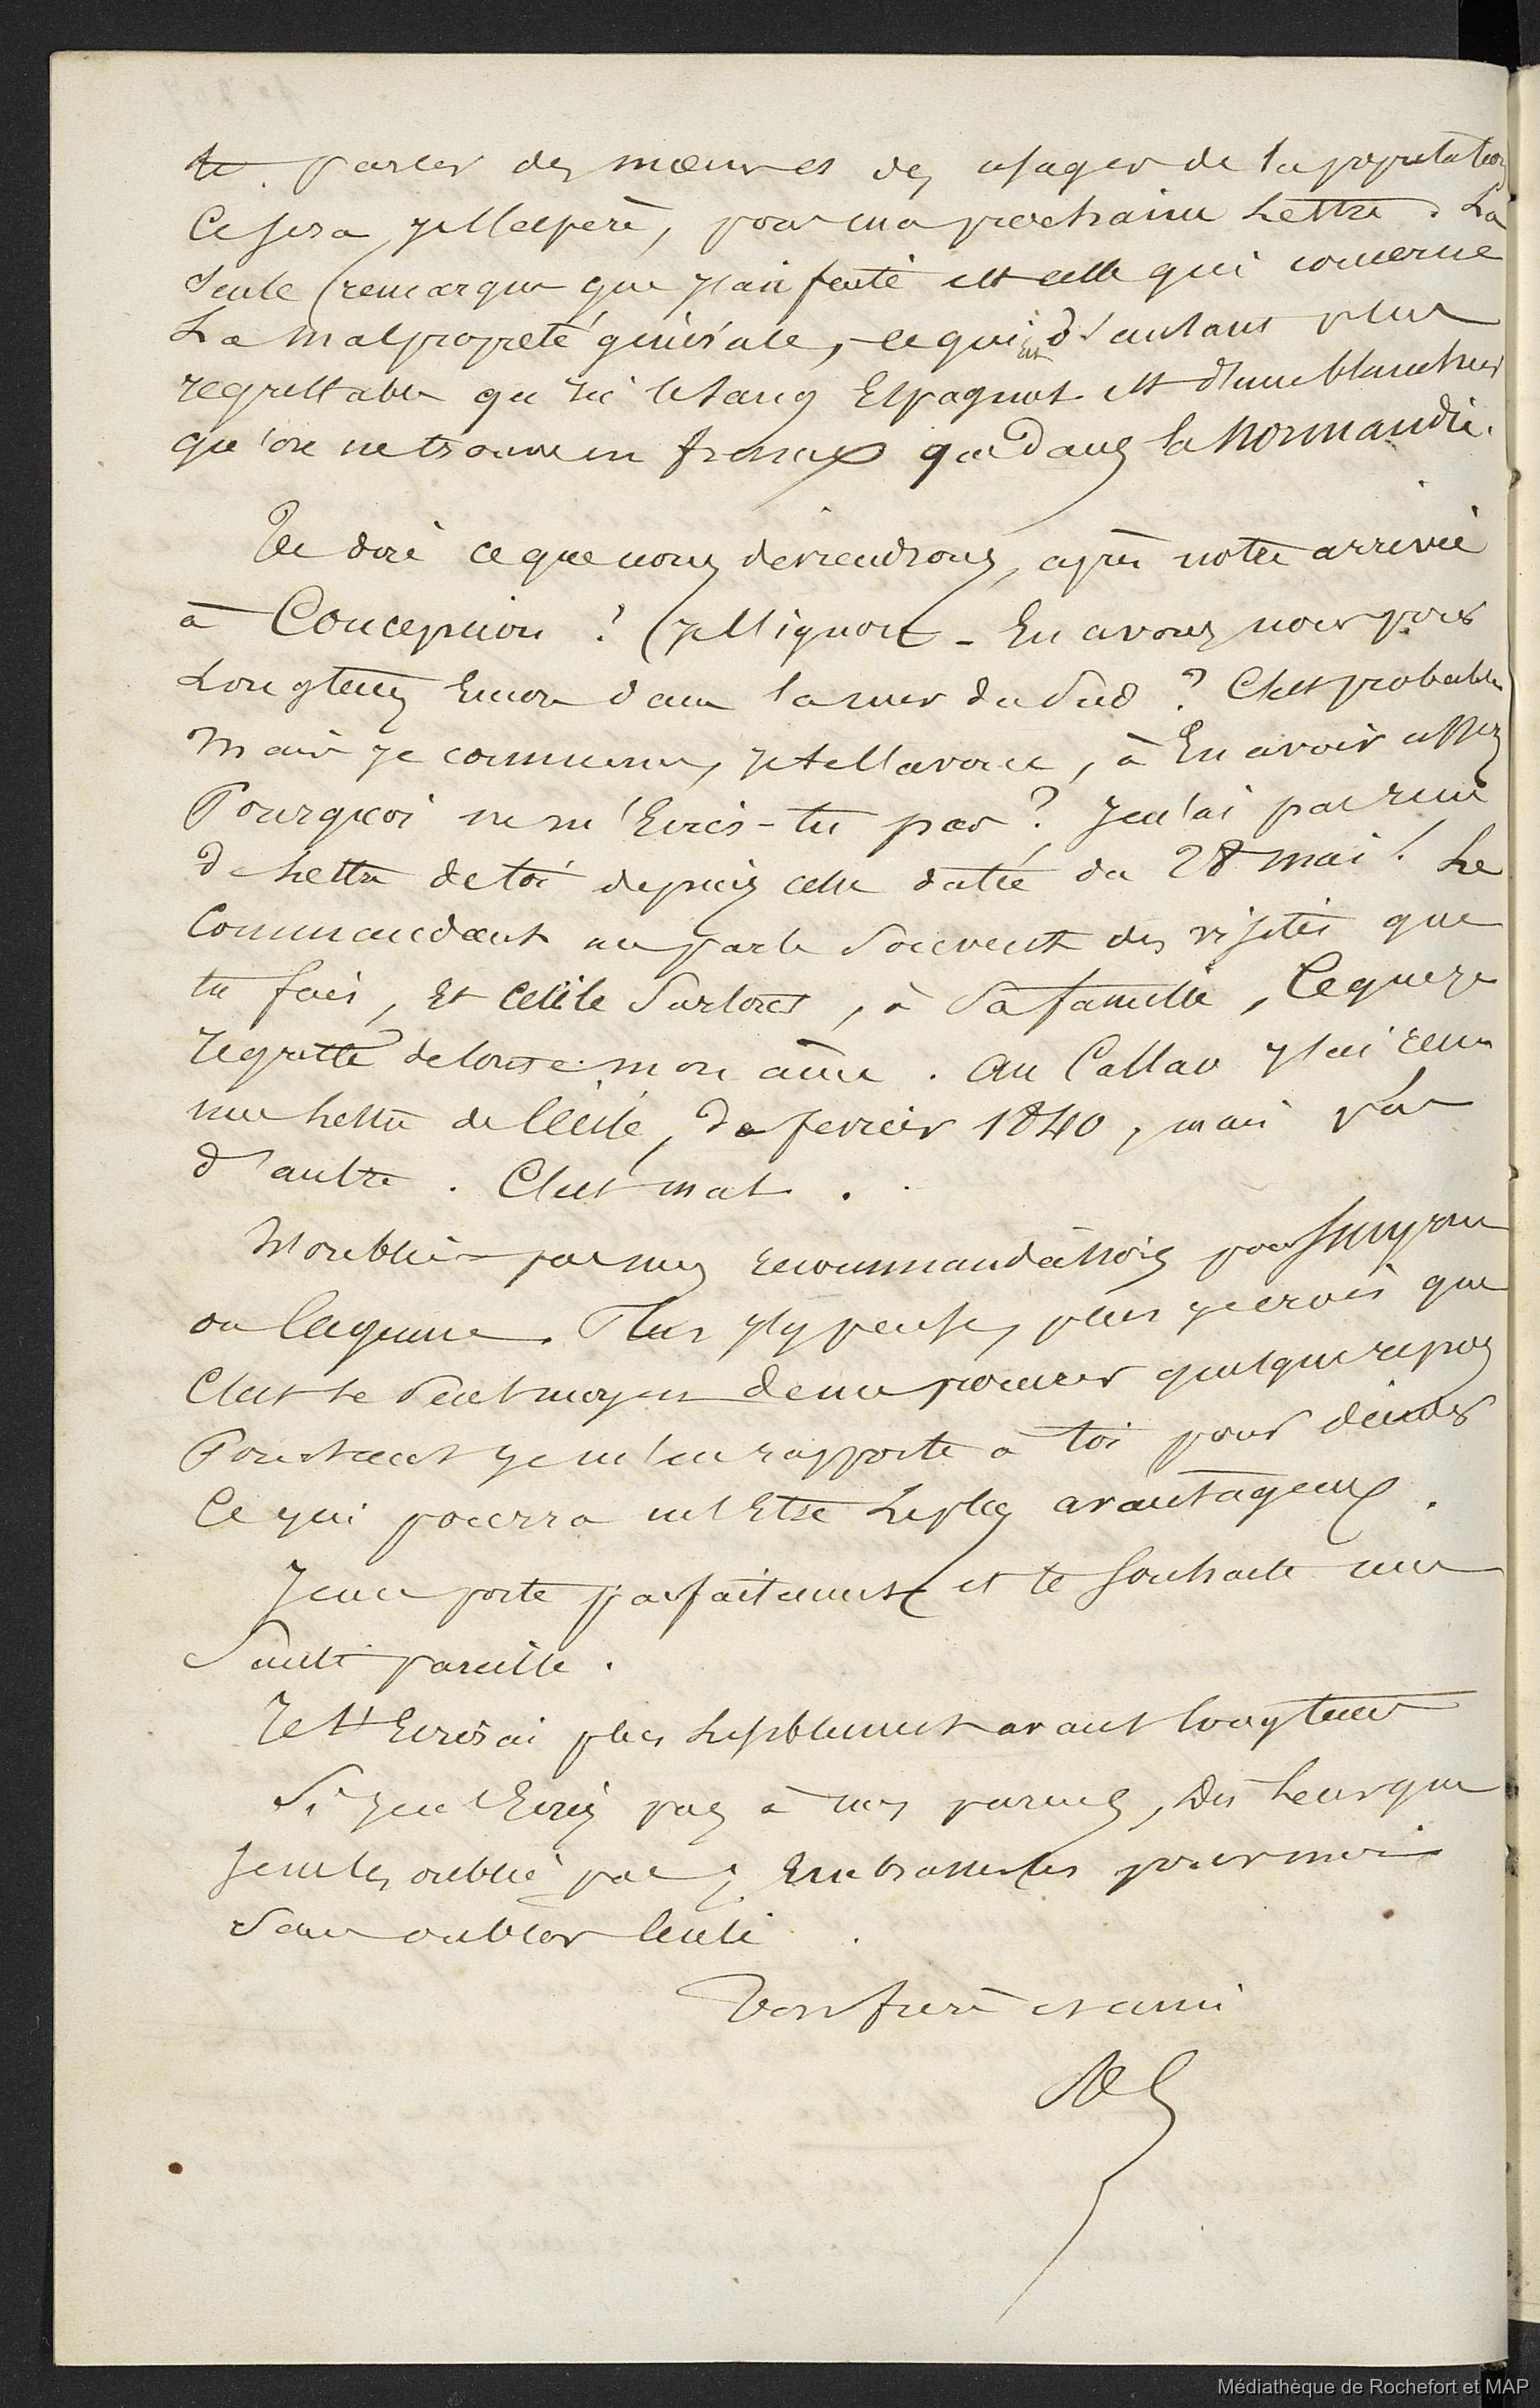 te parler des mœurs et des usages de la population
Ce sera, je l'espère, pour ma prochaine lettre. La
seule remarque que j'ai faite est celle qui concerne
La malpropreté générale, ce qui est d'autant plus
regrettable qu'ici le sang Espagnol est d'une blancheur
qu'on ne trouve en france que dans la Normandie.
Te dire ce que nous deviendrons, après notre arrivée
à Concepcion ? Je l'ignore - En avons nous pour
Longtems Encore dans la mer du Sud ? C'est probable
Mais je commence, je te l'avoue, à En avoir assez
Pourquoi ne m'Ecris-tu pas ? Je n'ai pas reçu
de Lettre de toi depuis celle datée du 28 mai ! Le
Commandant me parle souvent des visites que
tu fais, Et Célile Surtout, à Sa famille, Ce que je
regrette de toute mon âme. Au Callao j'ai reçu
une Lettre de Cécile, de fevrier 1840, mais pas
d'autre. C'est mal.
N'oublie pas mes recommandations pour Smyrne
ou Cayenne. Plus j'y pense, plus je crois que
C'est le Seul moyen de me procurer quelque repos
Pourtant je m'en rapporte à toi pour décider
Ce qui pourra m'Etre Le plus avantageux.
Je me porte parfaitement et te Souhaite une
Santé pareille.
Je t'Ecrirai plus avant longtems
Si je n'Ecris pas à nos parens, Dis Leur que
je ne les oublie pas, Embrasse les pour moi
Sans oublier Cécile.
Ton frère et ami
Médiathèque de Rochefort et MAP